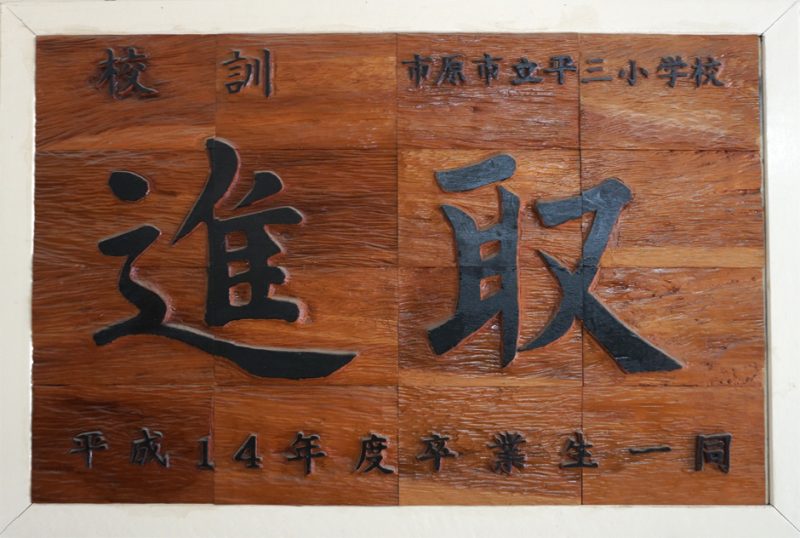 校訓 市原市立平三小学校
進取
平成14年度卒業生一同